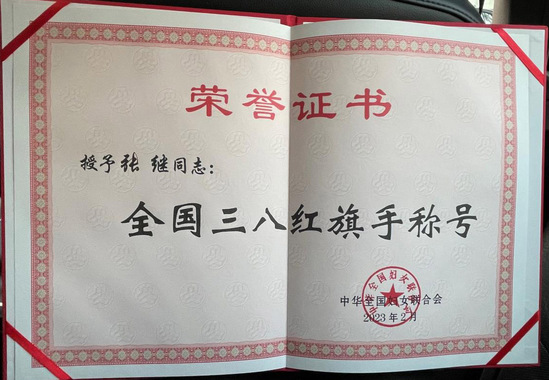 荣誉证书
授予张 继同志：
全国三八红旗手称号
中华全国妇女联合会
2023年2月